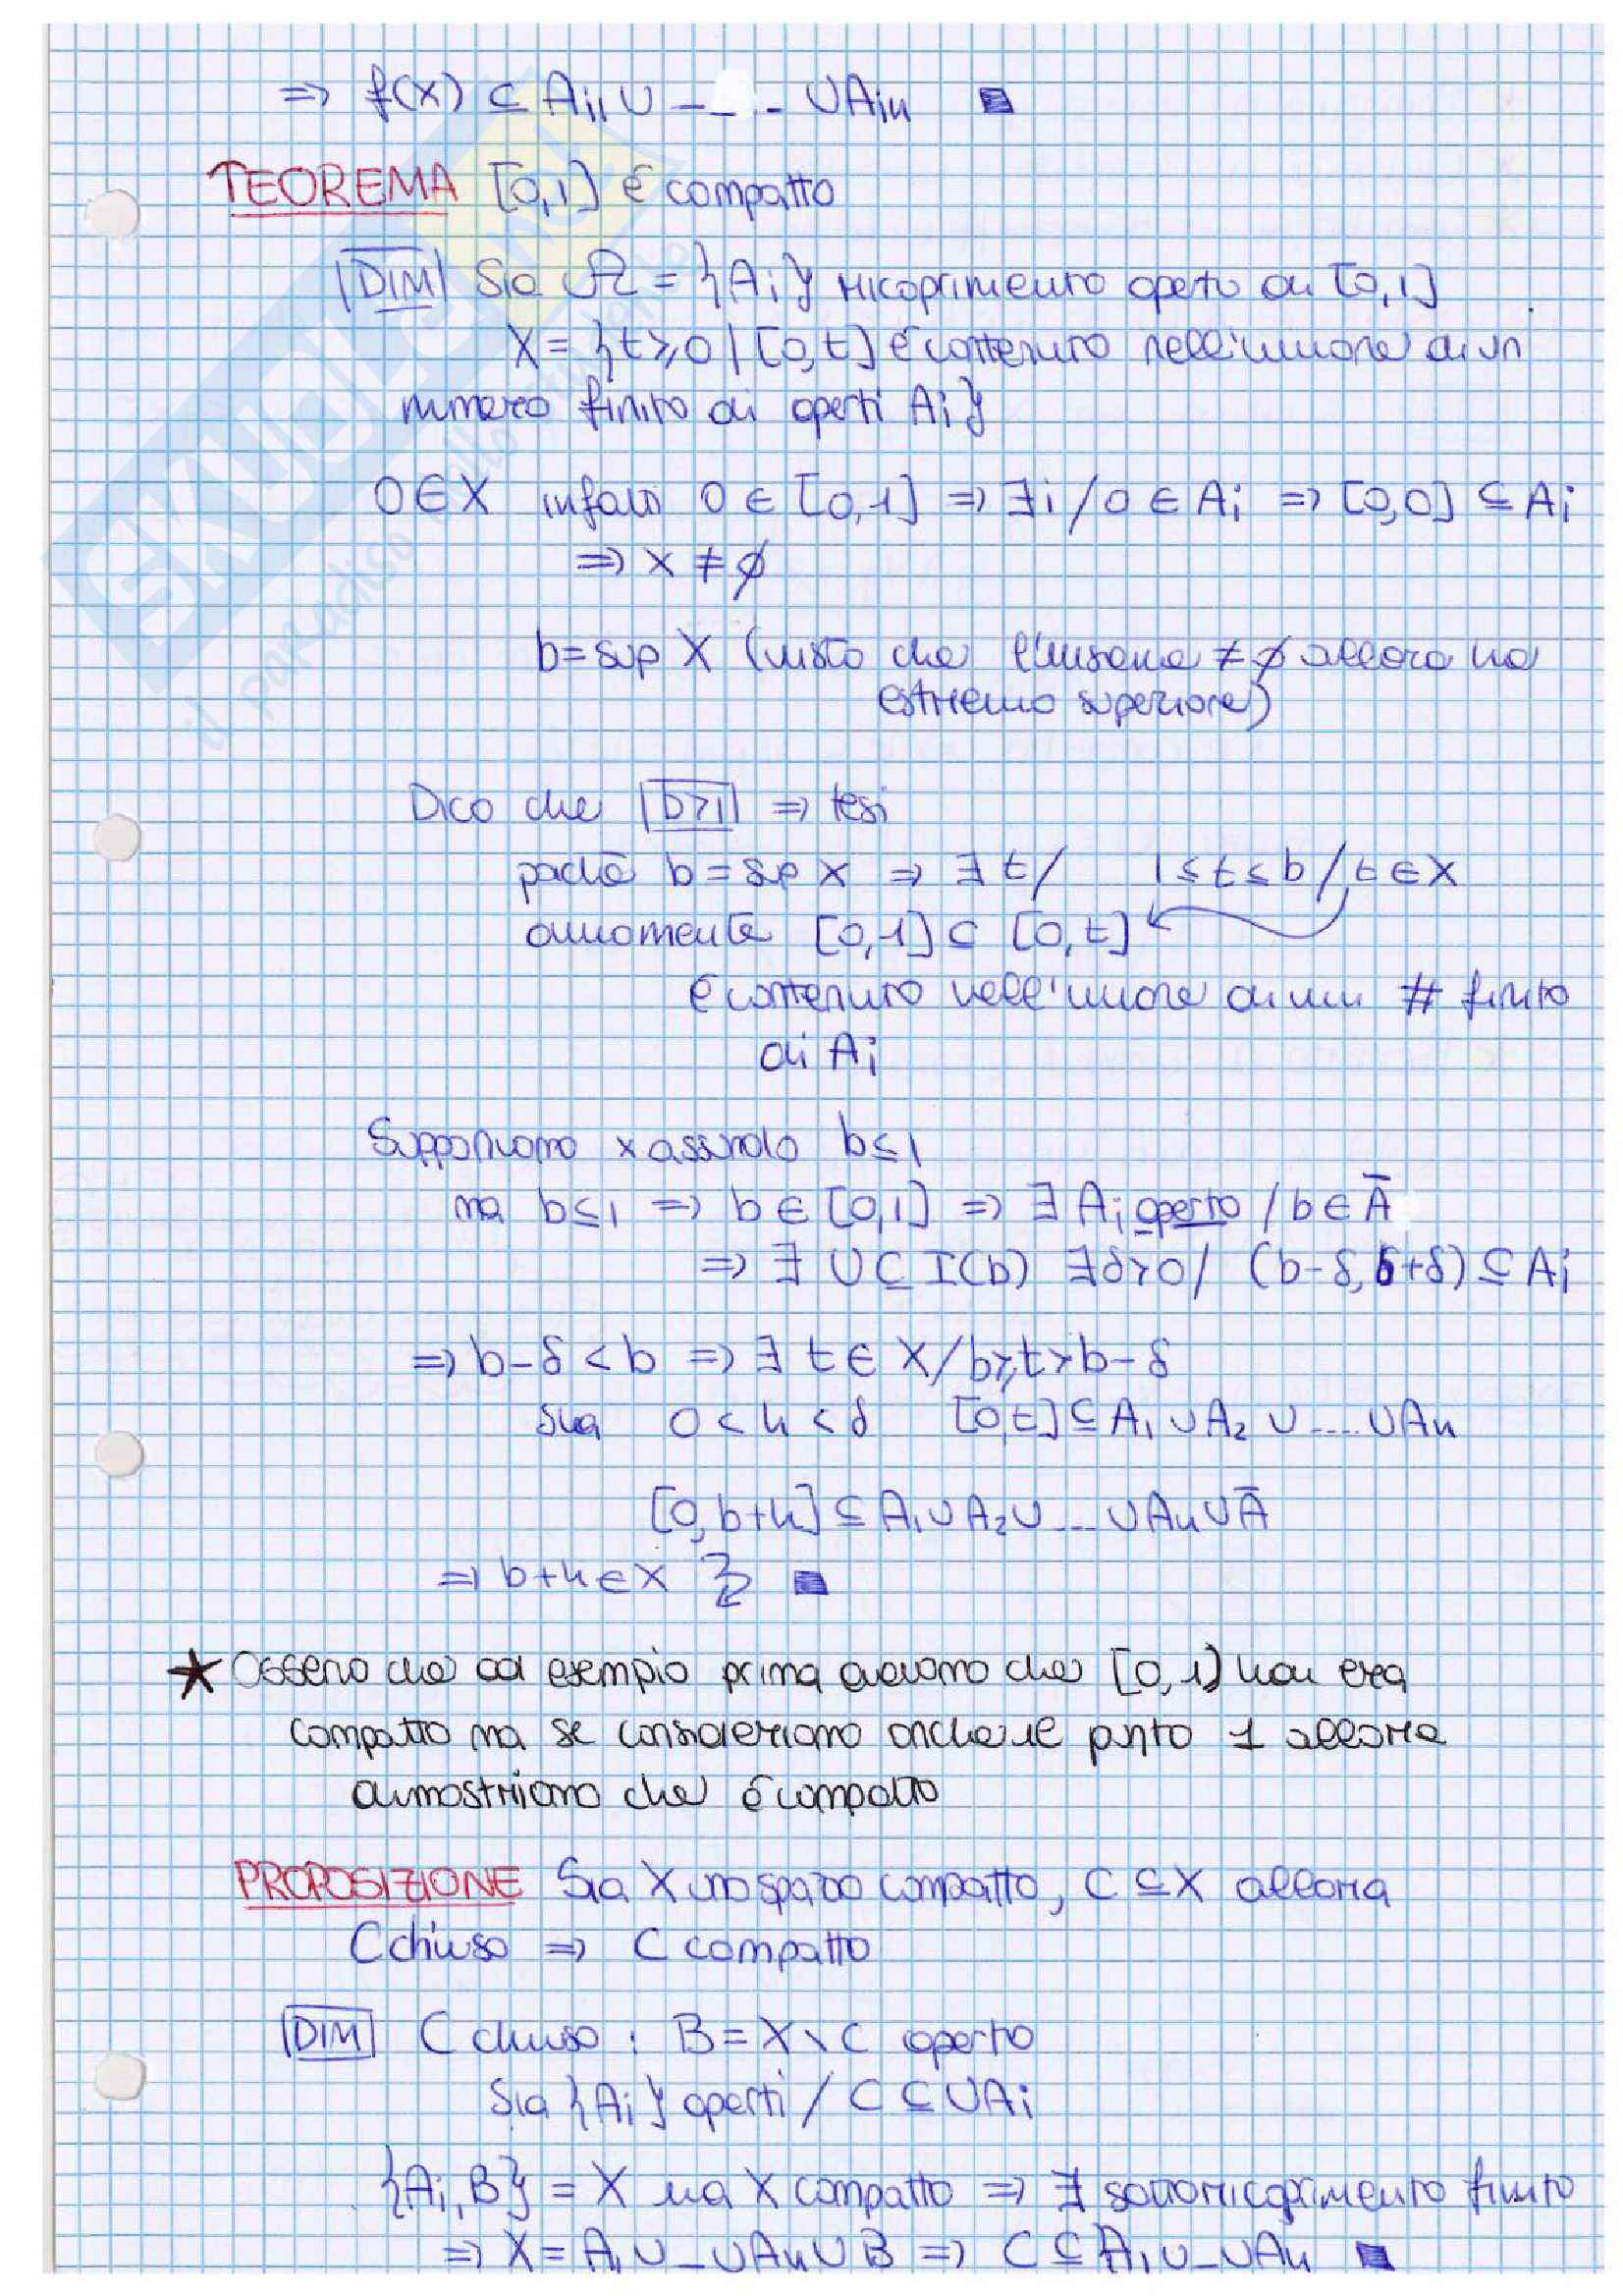 => f(X) ⊂ Ai1 ∪ ---- ∪ Ain ■
TEOREMA [0,1] é compatto
DIM Sia Ω = {Ai} ricoprimento aperto di [0,1]
X = {t ≥ 0 | [0,t] é contenuto nell'unione di un
numero finito di aperti Ai}
0 ∈ X infatti 0 ∈ [0,1] => ∃i / 0 ∈ Ai => [0,0] ⊆ Ai
=> X ≠ ∅
b = sup X (visto che l'insieme ≠ ∅ allora ha
estremo superiore)
Dico che b>1 => tesi
perchè b = sup X => ∃ t / 1 ≤ t ≤ b / t ∈ X
ovviamente [0,1] ⊂ [0,t]
é contenuto nell'unione di un # finito
di Ai
Supponiamo x assurdo b ≤ 1
ma b ≤ 1 => b ∈ [0,1] => ∃ Ai aperto / b ∈ Ā
=> ∃ U ⊆ I(b) ∃δ>0 / (b-δ, b+δ) ⊆ Ai
=> b-δ < b => ∃ t ∈ X / b ≥ t > b-δ
sia 0 < h < δ [0,t] ⊆ A1 ∪ A2 ∪ .... ∪ An
[0, b+h] ⊆ A1 ∪ A2 ∪ ... ∪ An ∪ Ā
=> b+h ∈ X ■
★ Osservo che col esempio prima avevamo che [0,1) non era
compatto ma se consideriamo anche il punto 1 allora
dimostriamo che é compatto
PROPOSIZIONE Sia X uno spazio compatto, C ⊆ X allora
C chiuso => C compatto
DIM C chiuso : B = X \ C aperto
Sia {Ai} aperti / C ⊆ ∪Ai
{Ai, B} = X ma X compatto => ∃ sottoricoprimento finito
=> X = A1 ∪ _ ∪ An ∪ B => C ⊆ A1 ∪ _ ∪ An ■
SKUOLA.net
il paradiso dello studente